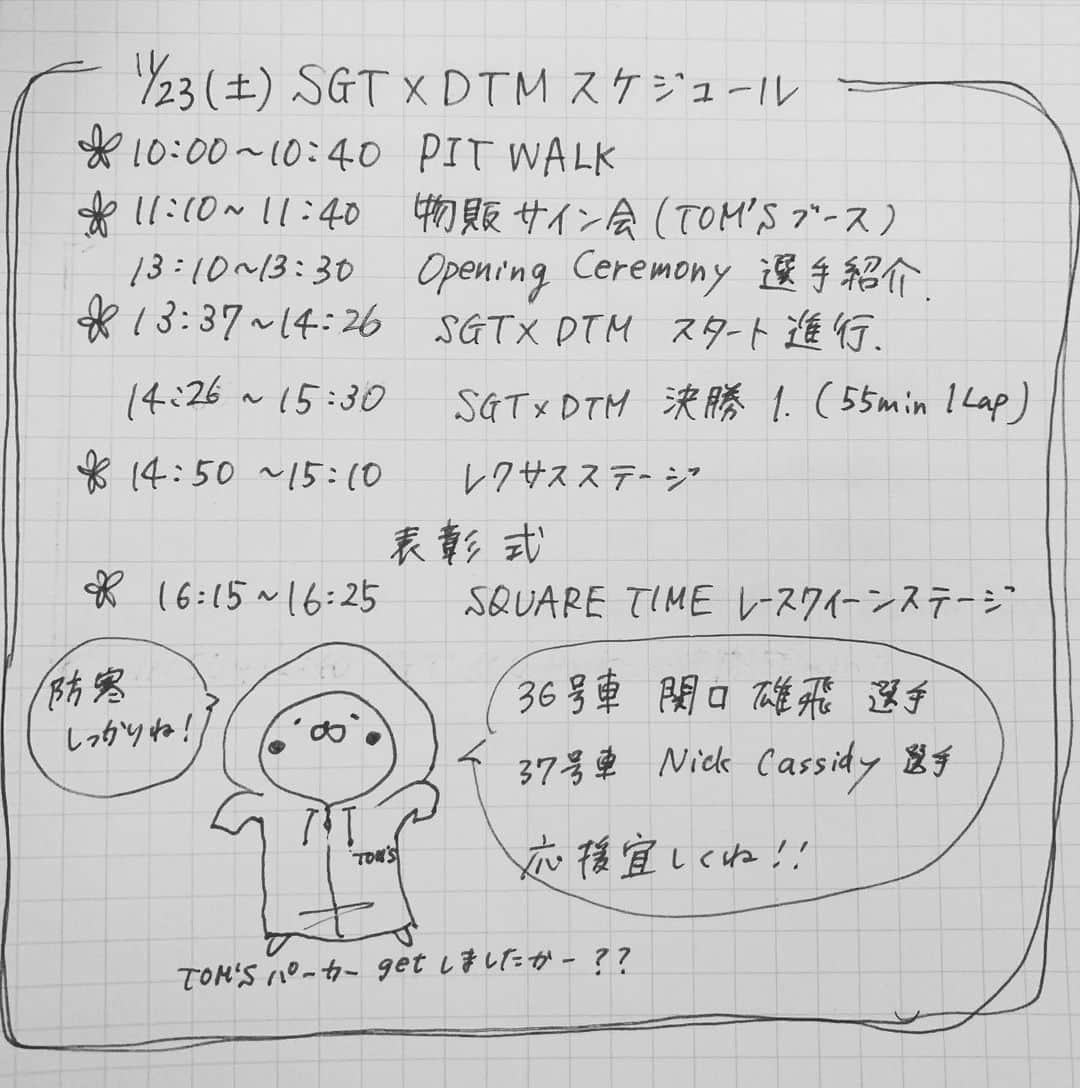 11/23(土) SGT×DTM スケジュール
10:00～10:40 PIT WALK
11:10～11:40 物販サイン会(TOM'Sブース)
13:10～13:30 Opening Ceremony 選手紹介.
13:37～14:26 SGT×DTM スタート進行.
14:26～15:30 SGT×DTM 決勝1.(55min 1Lap)
14:50～15:10 レクサスステージ
表彰式
16:15～16:25 SQUARE TIME レースクイーンステージ
防寒
しっかりね!
36号車 関口雄飛 選手
37号車 Nick Cassidy 選手
応援宜しくね!!
TOM'S
TOM'Sパーカー getしましたかー??